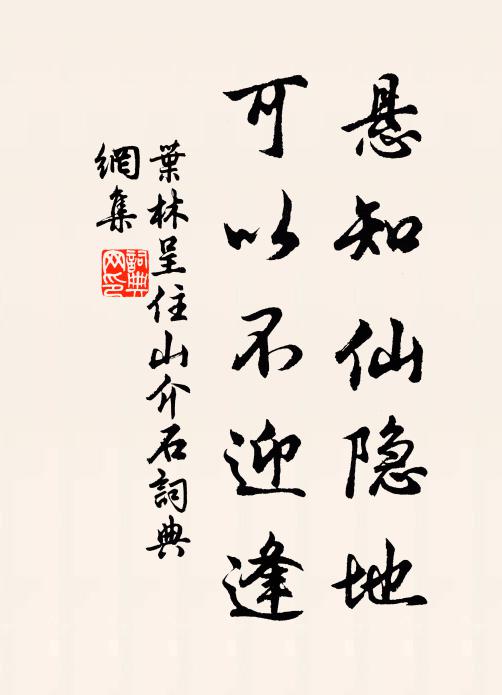 悬知仙隐地
可以不迎逢
葉林呈住山介石詞典
網集
詞典
网印